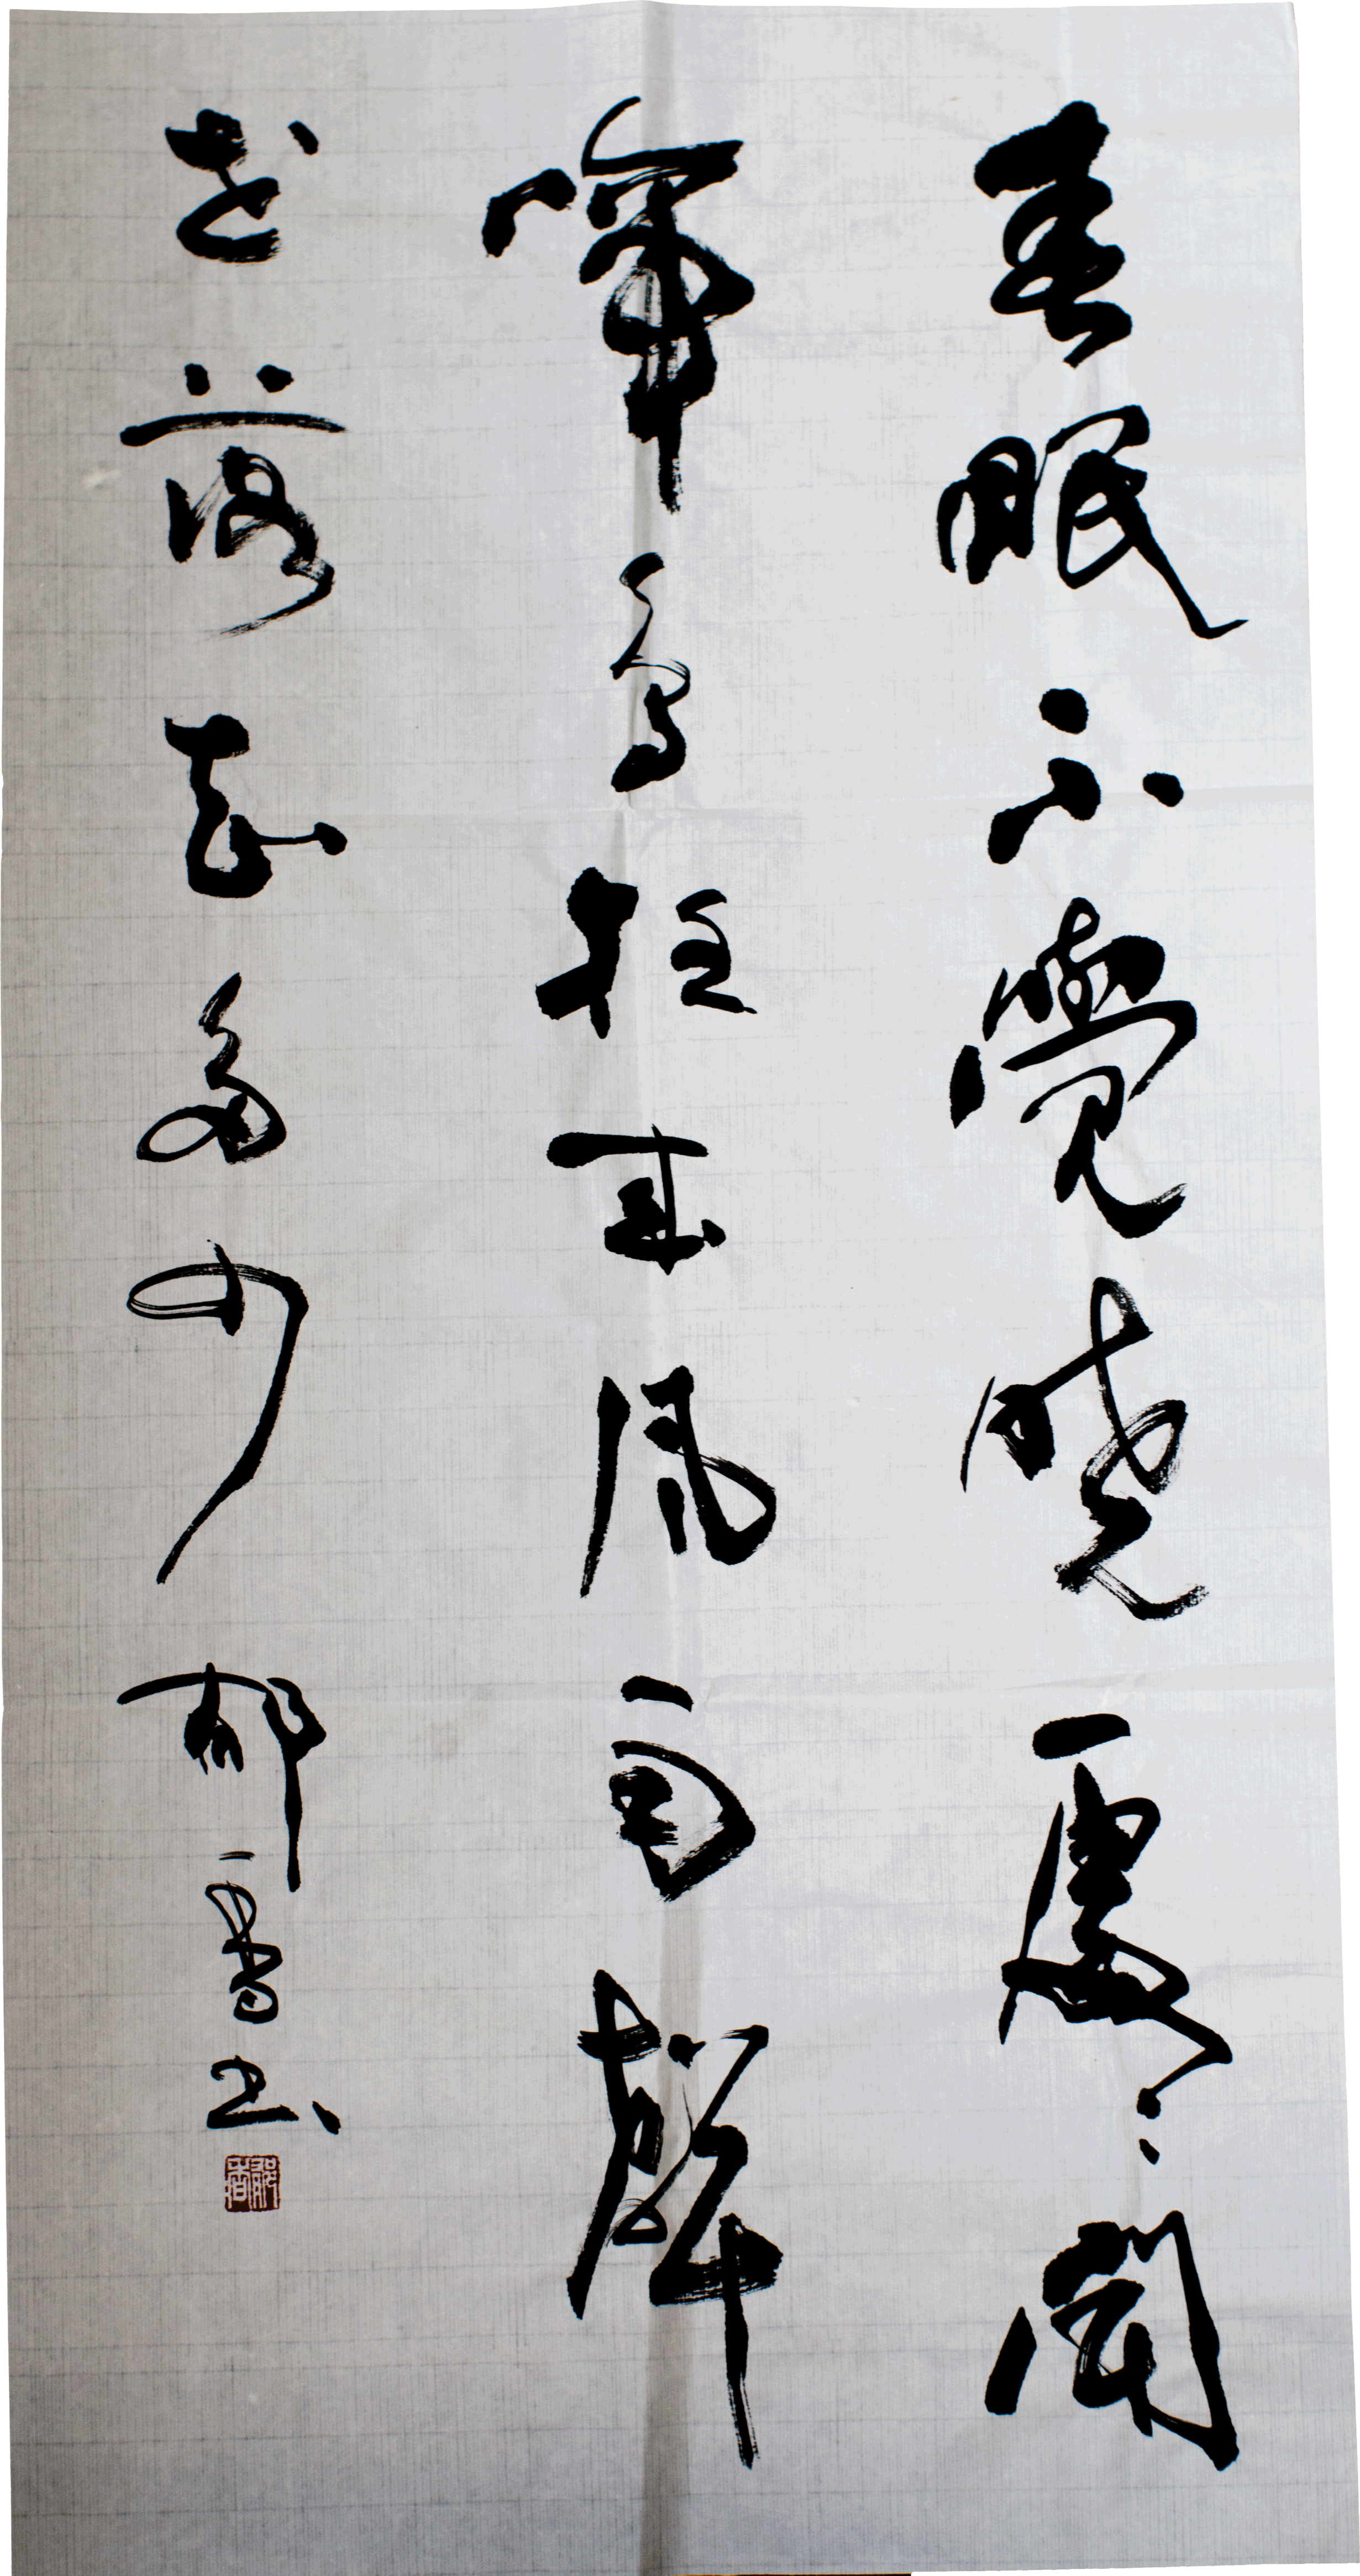 春眠不覺曉處〻聞
啼鳥夜來風雨聲
花落知多少 郁雪书